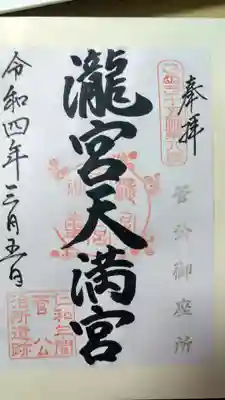 奉拝
菅公御座所
瀧宮天満宮
仁和年間
菅公
住所遺跡
令和四年三月五日